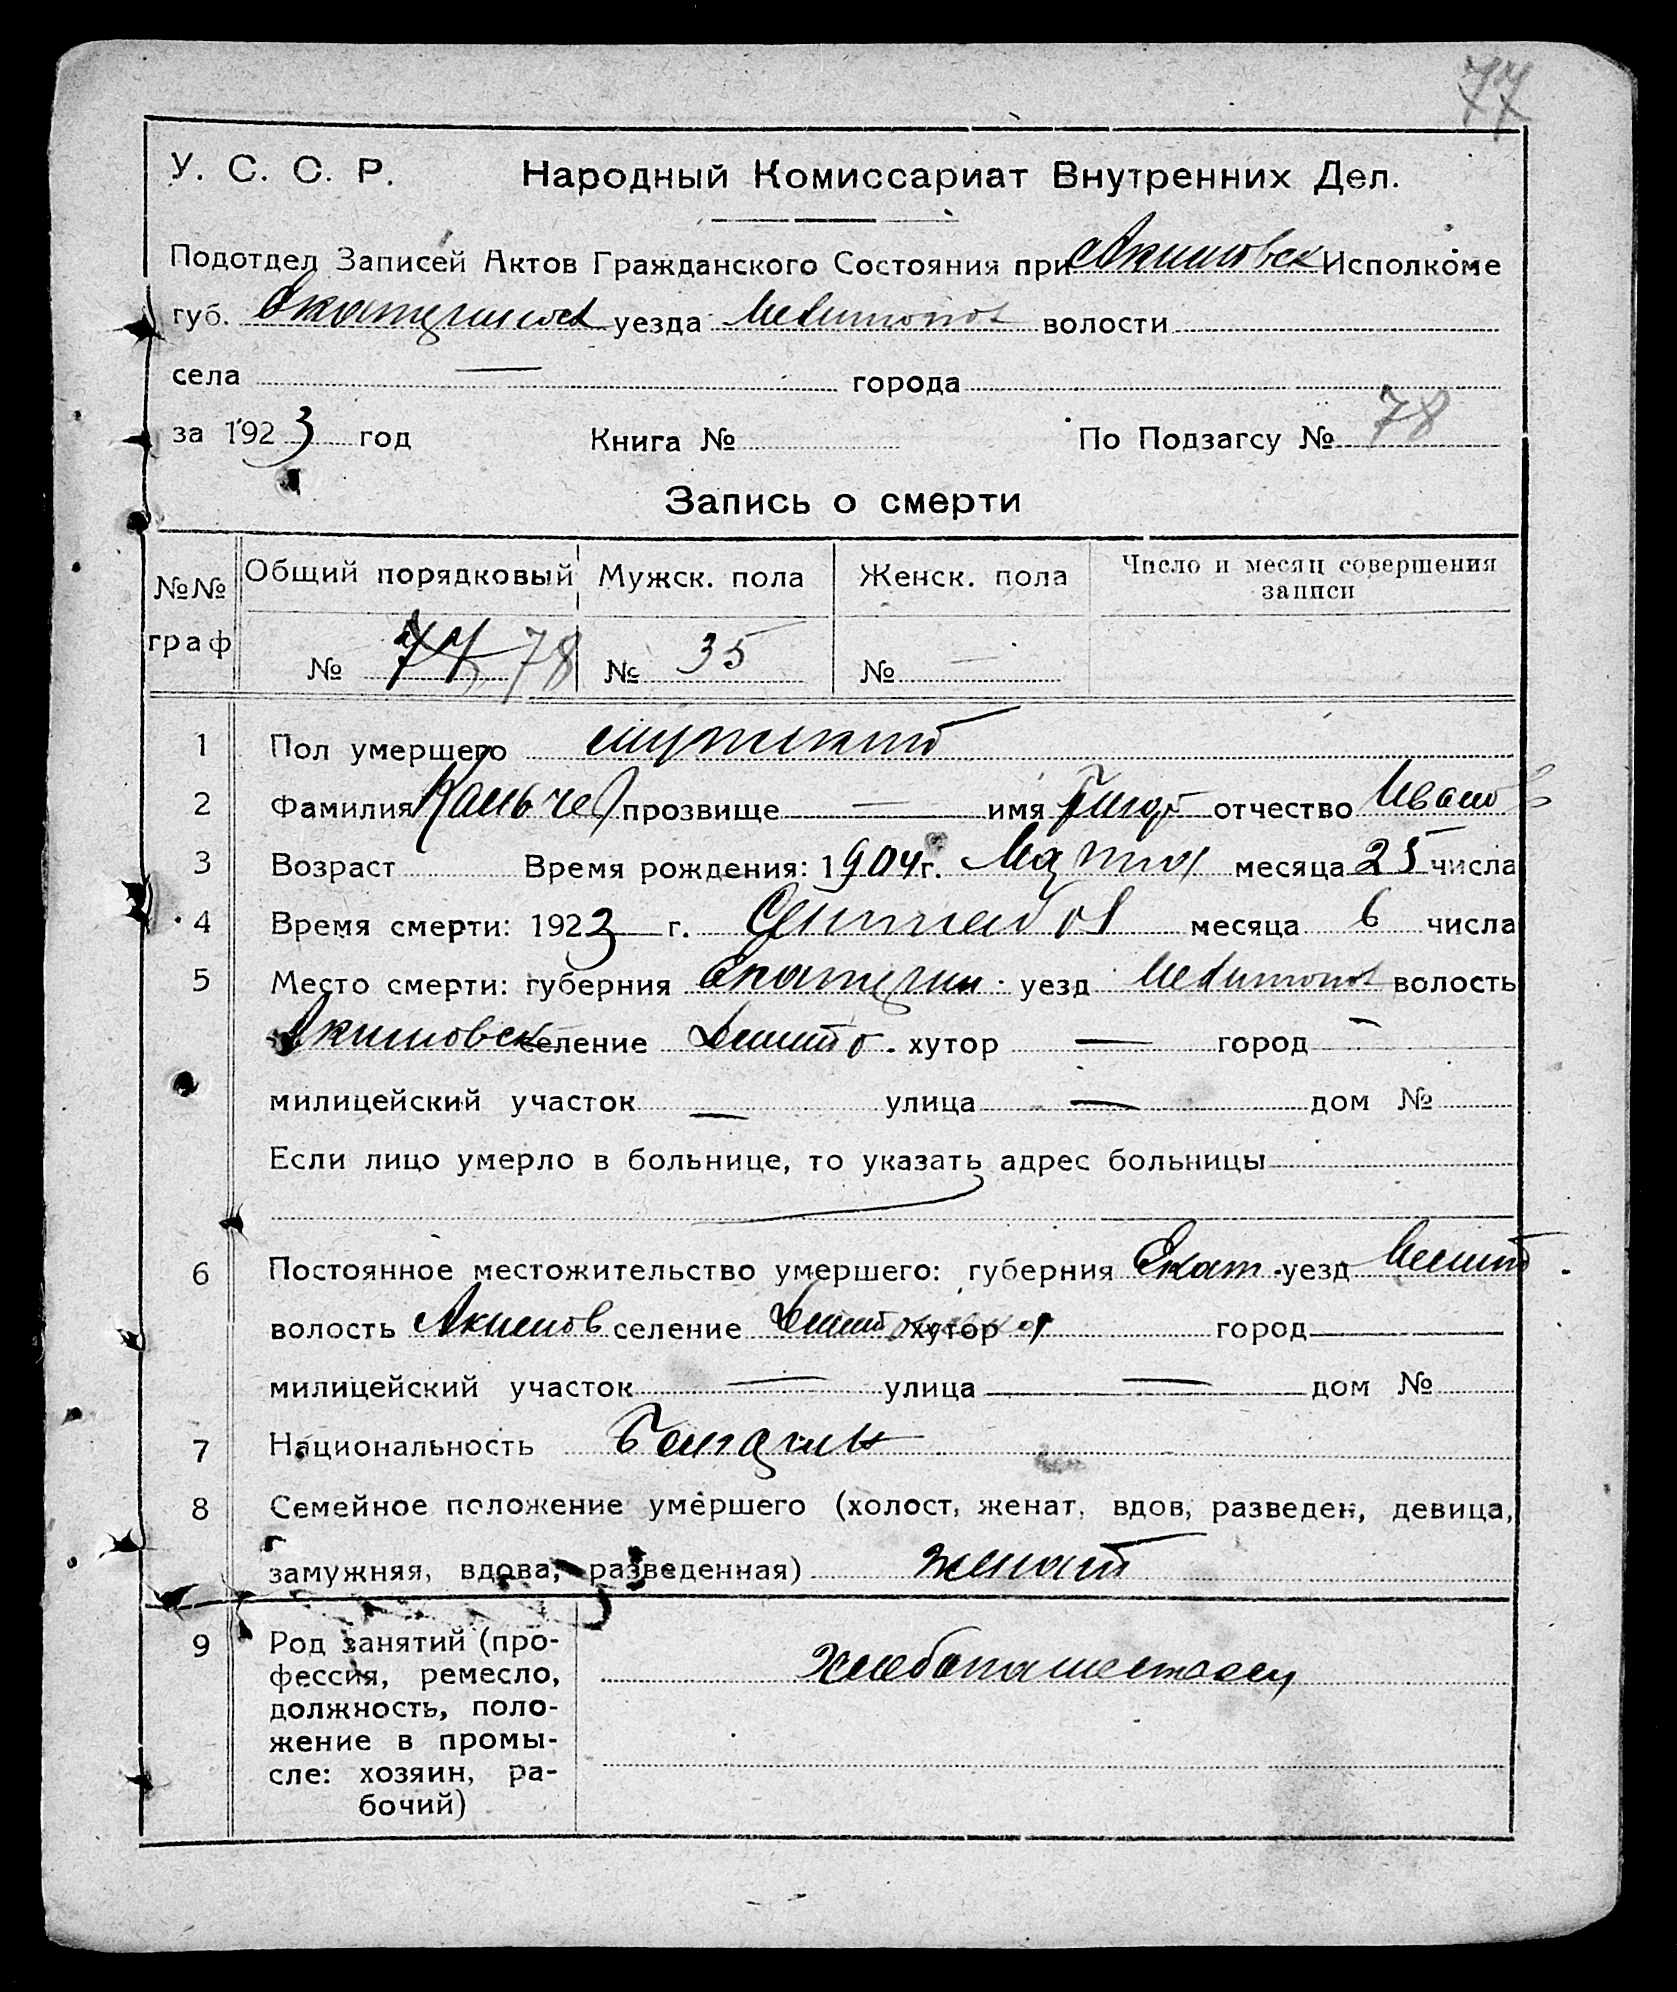 77
У. С. С. Р. Народный Комиссариат Внутренних Дел.
Подотдел Записей Актов Гражданского Состояния при Акимовск Исполкоме
губ. Екатеринос уезда Мелитопол волости
села — города
за 1923 год Книга № По Подзагсу № 78
Запись о смерти
№№ граф Общий порядковый Мужск. пола Женск. пола Число и месяц совершения записи
№ 77 78 № 35 № —
1 Пол умершего мужской
2 Фамилия прозвище — имя отчество Иванов
3 Возраст Время рождения: 1904 г. Марта месяца 25 числа
4 Время смерти: 1923 г. Сентября месяца 6 числа
5 Место смерти: губерния Екатерин. уезд Мелитопол волость
Акимовск селение хутор — город —
милицейский участок — улица — дом №
Если лицо умерло в больнице, то указать адрес больницы
6 Постоянное местожительство умершего: губерния Екат. уезд Мелит.
волость Акимов селение хутор город
милицейский участок — улица — дом №
7 Национальность Болгарин
8 Семейное положение умершего (холост, женат, вдов, разведен, девица,
замужняя, вдова, разведенная) женат
9 Род занятий (про-
фессия, ремесло, хлебопашество
должность, поло-
жение в промы-
сле: хозяин, ра-
бочий)